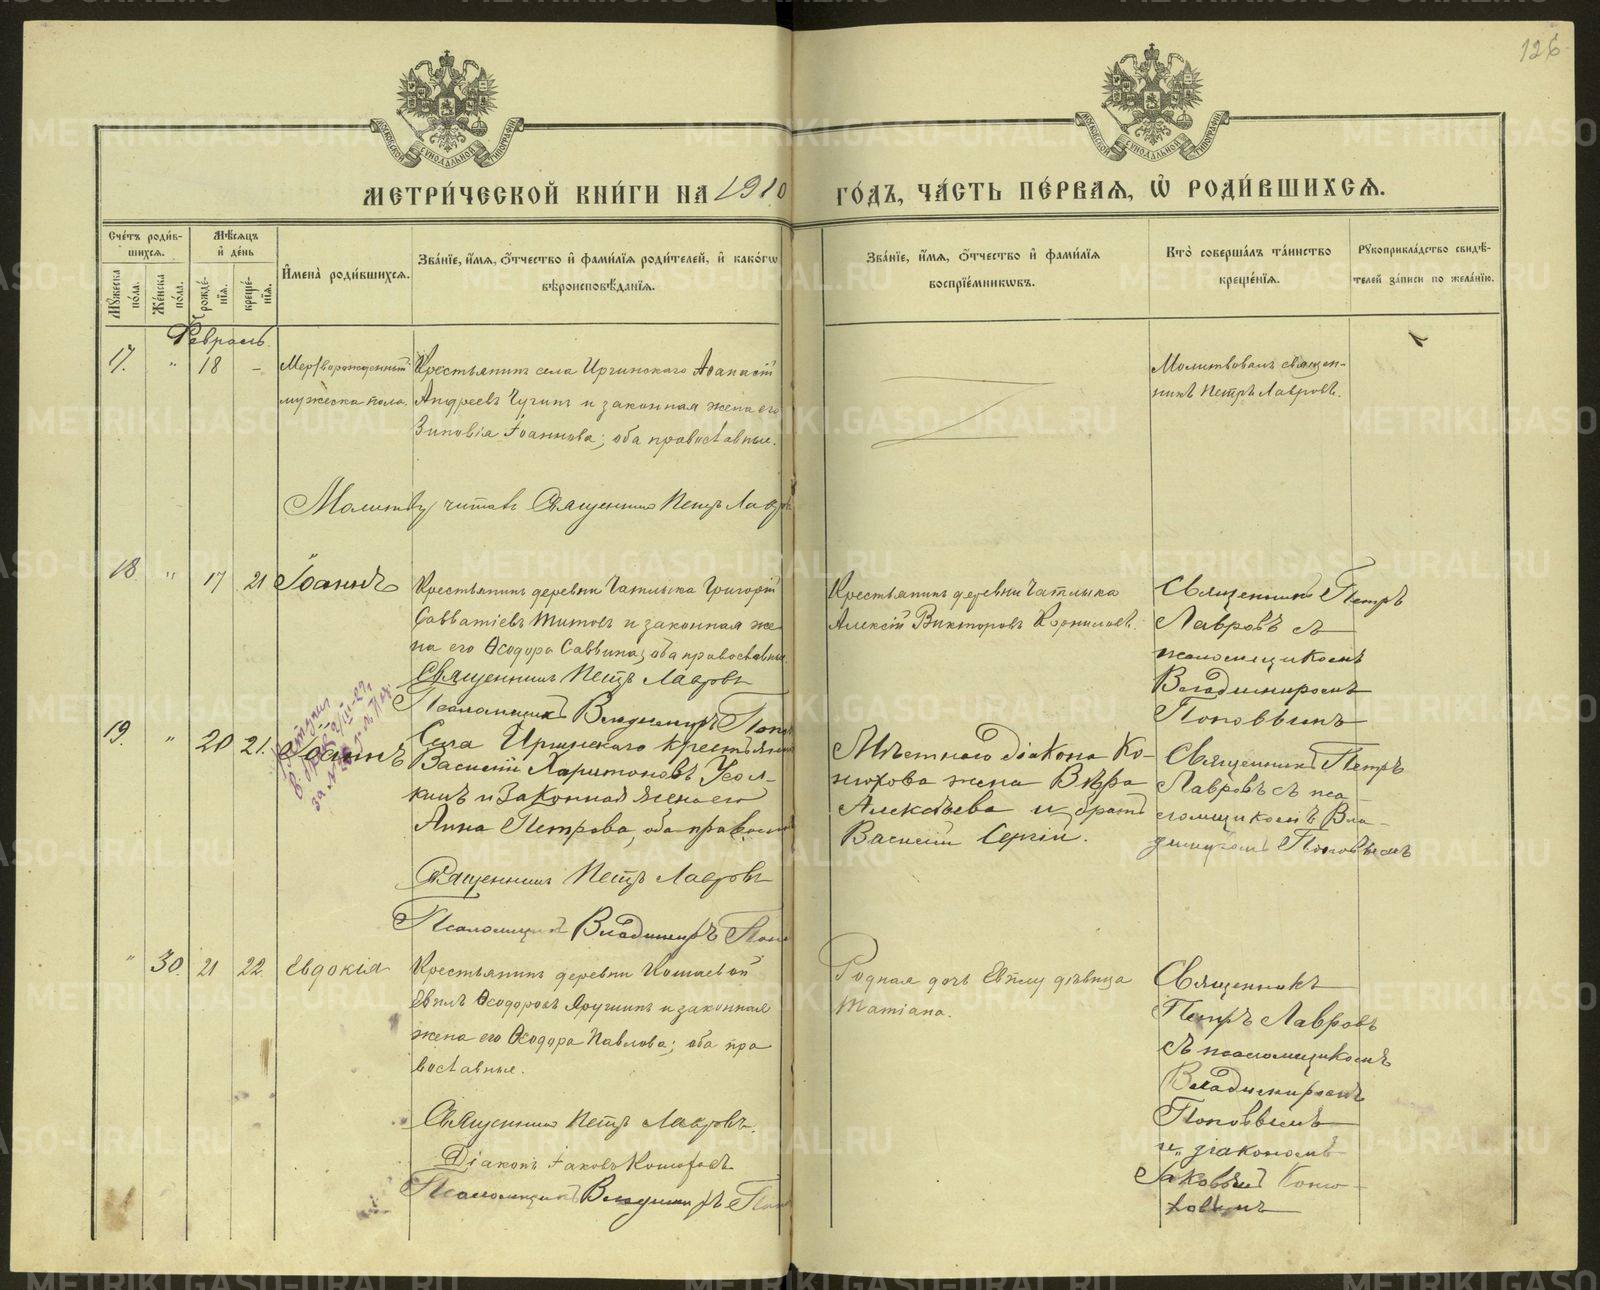 126
МЕТРИ́ЧЕСКОЙ КНИ́ГИ НА 1910 ГО́ДЪ, ЧА́СТЬ ПЕ́РВАЯ, Ѡ РОДИ́ВШИХСѦ.
Сче́тъ роди́в-
шихсѧ.
Мꙋ́жеска по́ла.
Же́нска по́ла.
Мѣ́сѧцъ и де́нь
рожде́-
нїѧ.
креще́-
нїѧ.
Имена̀ роди́вшихсѧ.
Зва́нїе, и́мѧ, о́тчество и фами́лїѧ роди́телей, и како́гѡ
вѣроисповѣ́данїѧ.
Зва́нїе, и́мѧ, о́тчество и фами́лїѧ
воспрїе́мникѡвъ.
Кто̀ соверша́лъ та́инство
креще́нїѧ.
Рꙋкоприкла́дство свидѣ́-
телей за́писи по жела́нїю.
Февраль.
17. " 18 –
Мертворожденный
мужеска пола.
Крестьянинъ села Иргинскаго Аѳанасій
Андреевъ Чугинъ и законная жена его
Зиновія Іоаннова; оба православные.
Молитвовалъ священ-
никъ Петръ Лавровъ.
Молитву читавъ Священникъ Петръ Лавровъ
18 " 17 21 Іоаннъ
Крестьянинъ деревни Чатлыка Григорій
Савватіевъ Титовъ и законная же-
на его Ѳеодора Саввина; оба православные.
Священникъ Петръ Лавровъ
Псаломщикъ Владимиръ Попо
Крестьянинъ деревни Чатлыка
Алексій Викторовъ Корниловъ.
Священникъ Петръ
Лавровъ съ
псаломщикомъ
Владимиромъ
Поповымъ
19. " 20 21. Іоаннъ
Села Иргинскаго крестьянинъ
Василій Харитоновъ Усол-
кинъ и законная жена его
Анна Петрова, оба православ
Священникъ Петръ Лавровъ
Псаломщикъ Владимиръ Попо
Мѣстнаго діакона Ко-
нюхова жена Вѣра
Алексѣева и братъ
Василій Сергій.
Священникъ Петръ
Лавровъ съ пса-
ломщикомъ Вла-
димиромъ Поповымъ
" 30. 21 22. Евдокія
Крестьянинъ деревни Кошаевой
Евплъ Ѳеодоровъ Ярушинъ и законная
жена его Ѳеодора Павлова; оба пра
вославные.
Священникъ Петръ Лавровъ.
Діаконъ Іаковъ Конюховъ
Псаломщикъ Владимиръ Попо
Родная дочь Евплу дѣвица
Татіана.
Священникъ
Петръ Лавровъ
съ псаломщикомъ
Владимиромъ
Поповымъ
и діакономъ
Іаковомъ Коню-
ховымъ
METRIKI.GASO-URAL.RU